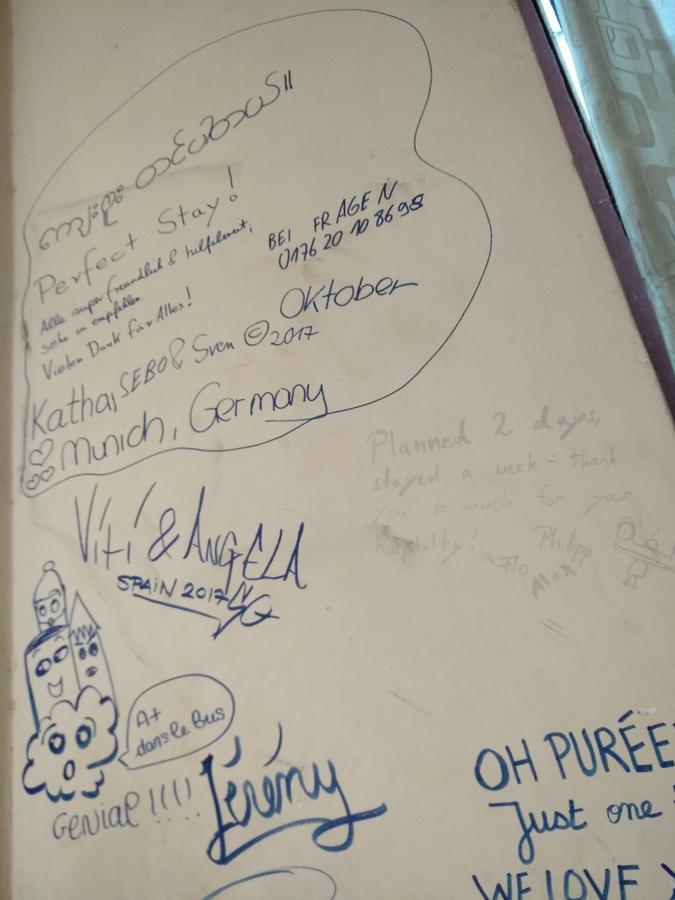 ကျေးဇူး တင်ပါတယ်။
Perfect Stay!
Alle super freundlich & hilfsbereit,
sehr zu empfehlen
Vielen Dank für Alles!
BEI FRAGEN
0176 20 10 86 98
Oktober
2017
Katha, SEBO & Sven
Munich, Germany
Planned 2 days,
stayed a week - thank
you so much for your
hospitality!
Flo Philipp
Viti & ANGELA
SPAIN 2017
A+
dans le Bus
Génial !!!! Jérémy
OH PURÉE
Just one
WE LOVE